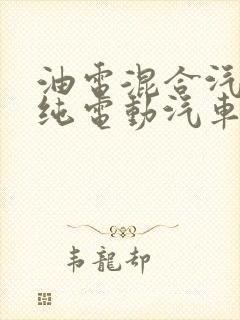 油電混合汽
纯電動汽車
韦龍却